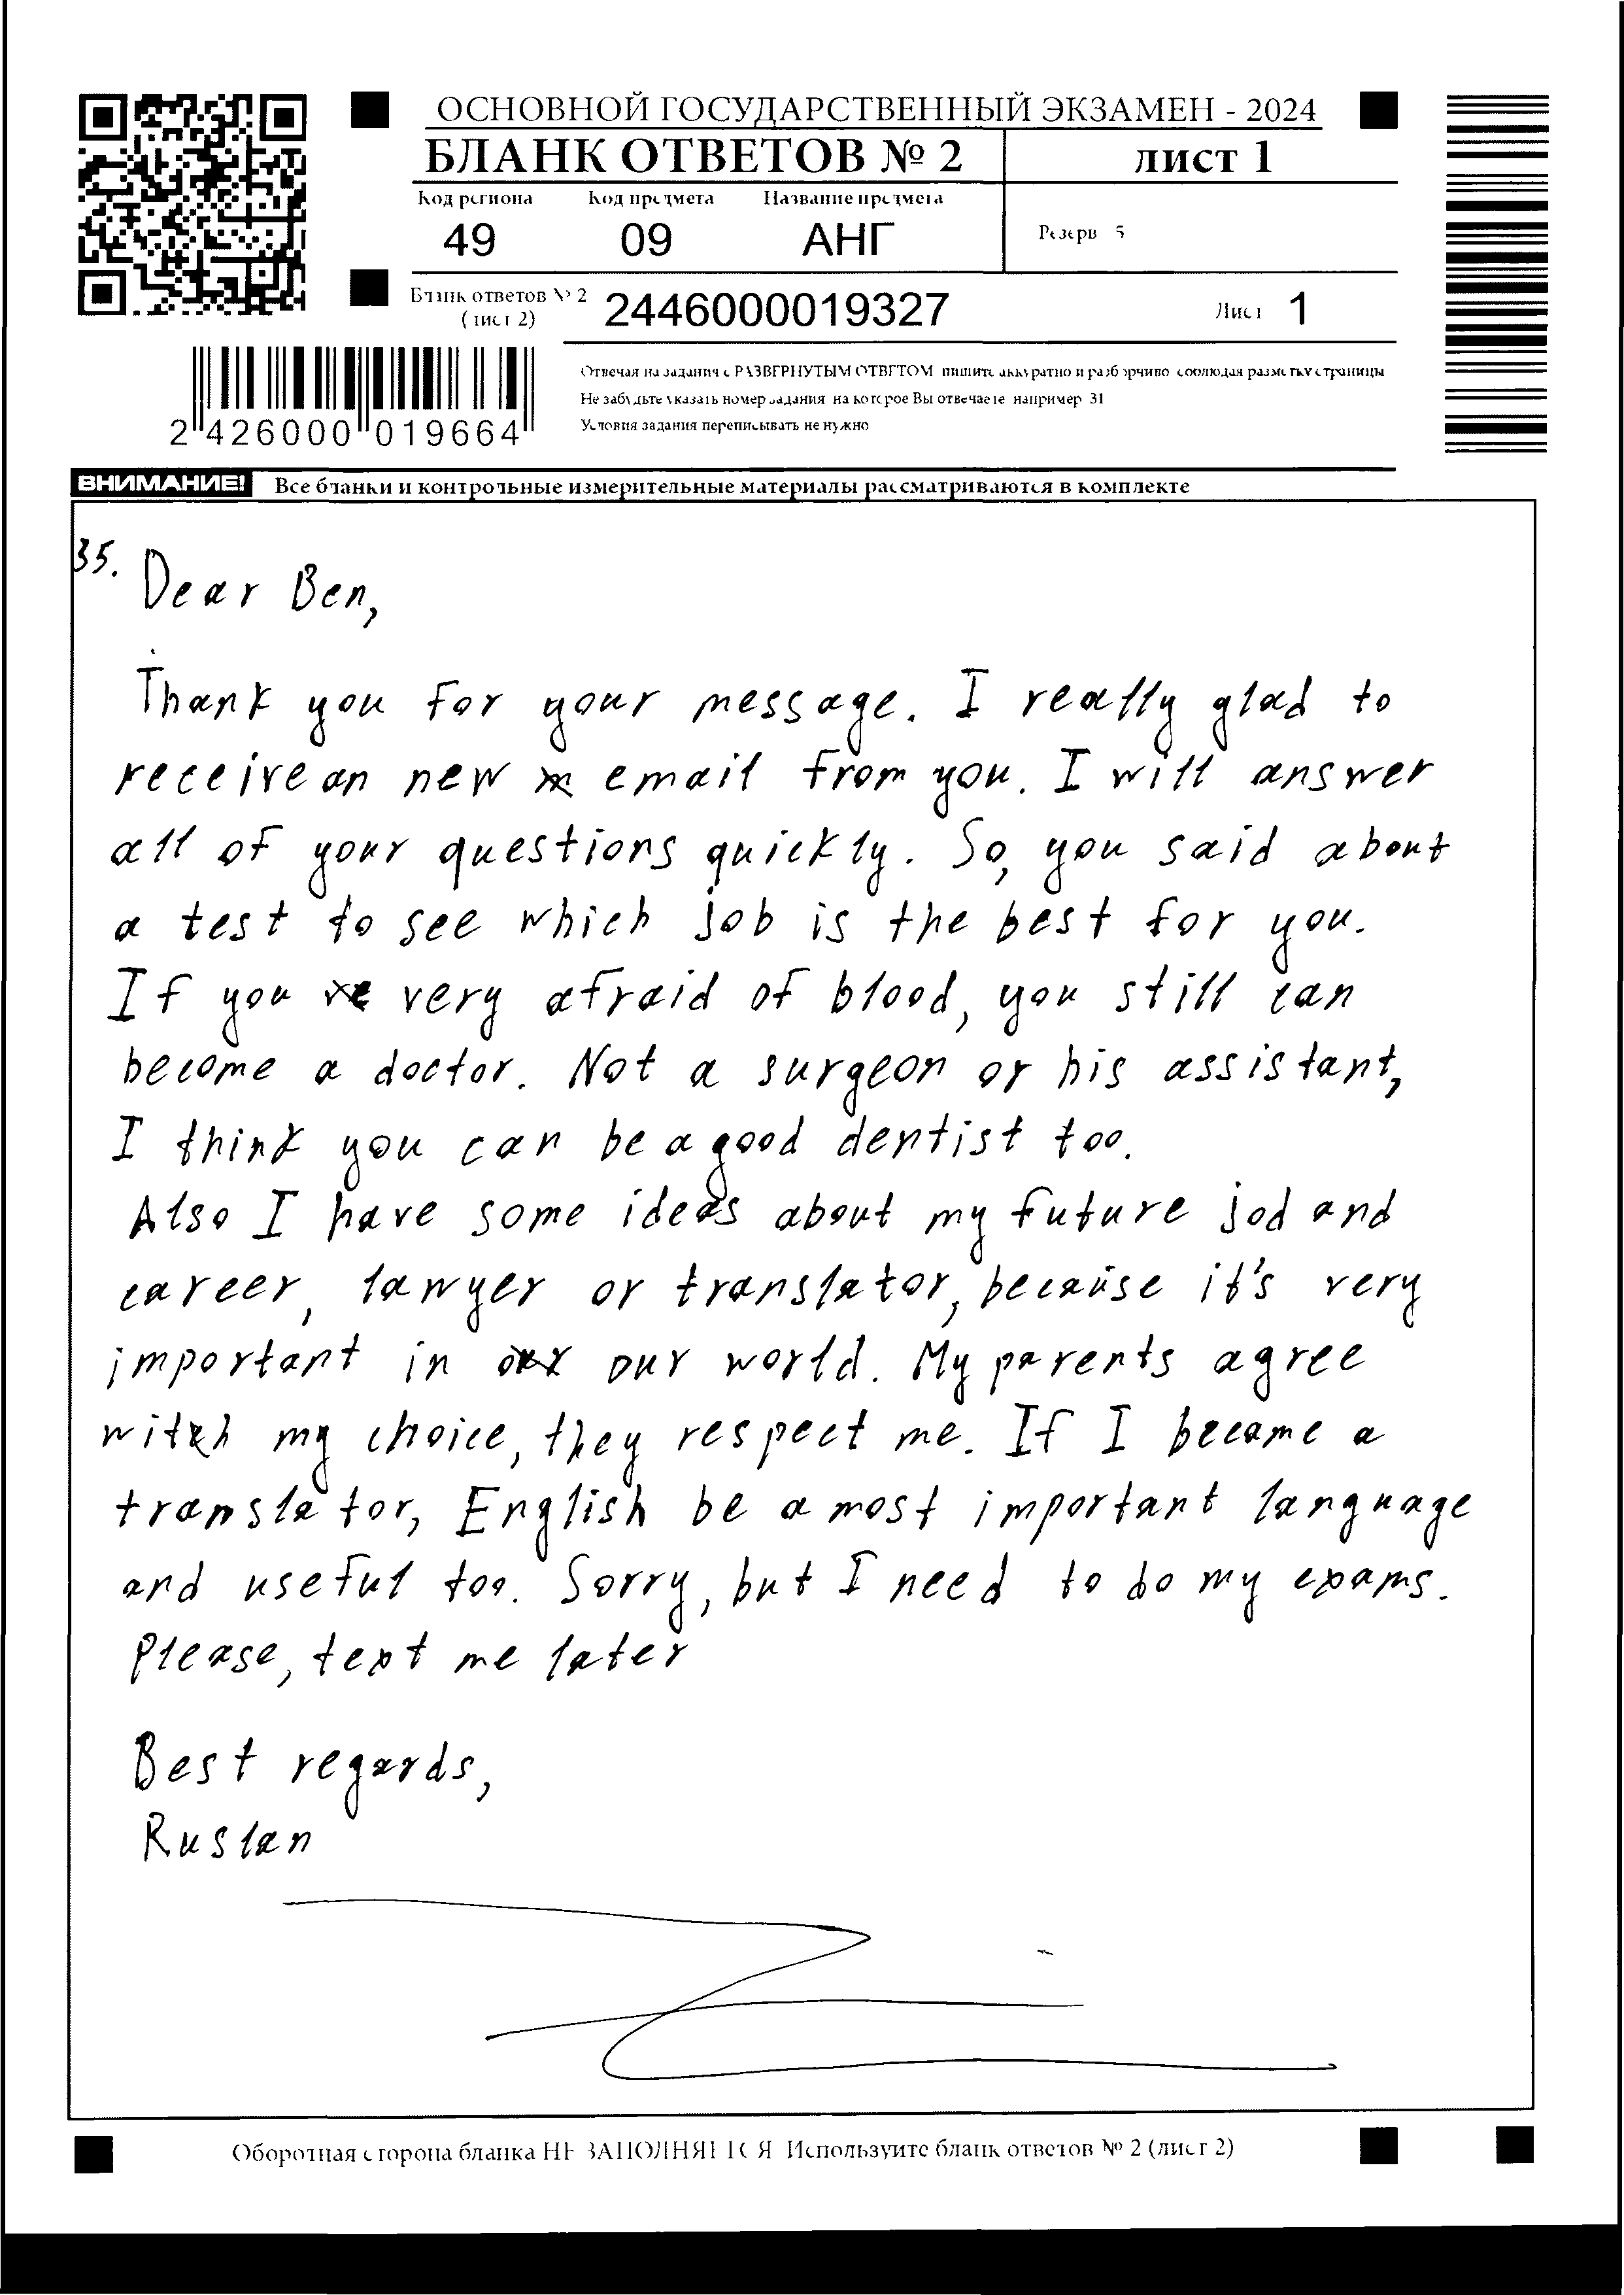 ОСНОВНОЙ ГОСУДАРСТВЕННЫЙ ЭКЗАМЕН - 2024
БЛАНК ОТВЕТОВ № 2
лист 1
Код региона Код предмета Название предмета
49 09 АНГ
Резерв 5
Бланк ответов № 2
(лист 2)
2446000019327
Лист 1
Отвечая на задания с РАЗВЕРНУТЫМ ОТВЕТОМ пишите аккуратно и разборчиво соблюдая разметку страницы
Не забудьте указать номер задания на которое Вы отвечаете например 31
Условия задания переписывать не нужно
2 426000 019664
ВНИМАНИЕ! Все бланки и контрольные измерительные материалы рассматриваются в комплекте
35.
Dear Ben,
Thank you for your message. I really glad to
receive an new email from you. I will answer
all of your questions quickly. So, you said about
a test to see which job is the best for you.
If you very afraid of blood, you still can
become a doctor. Not a surgeon or his assistant,
I think you can be a good dentist too.
Also I have some ideas about my future jod and
career, lawyer or translator, because it's very
important in our world. My parents agree
with my choice, they respect me. If I became a
translator, English be a most important language
and useful too. Sorry, but I need to do my exams.
Please, text me later
Best regards,
Ruslan
Оборотная сторона бланка НЕ ЗАПОЛНЯЕТСЯ Используйте бланк ответов № 2 (лист 2)